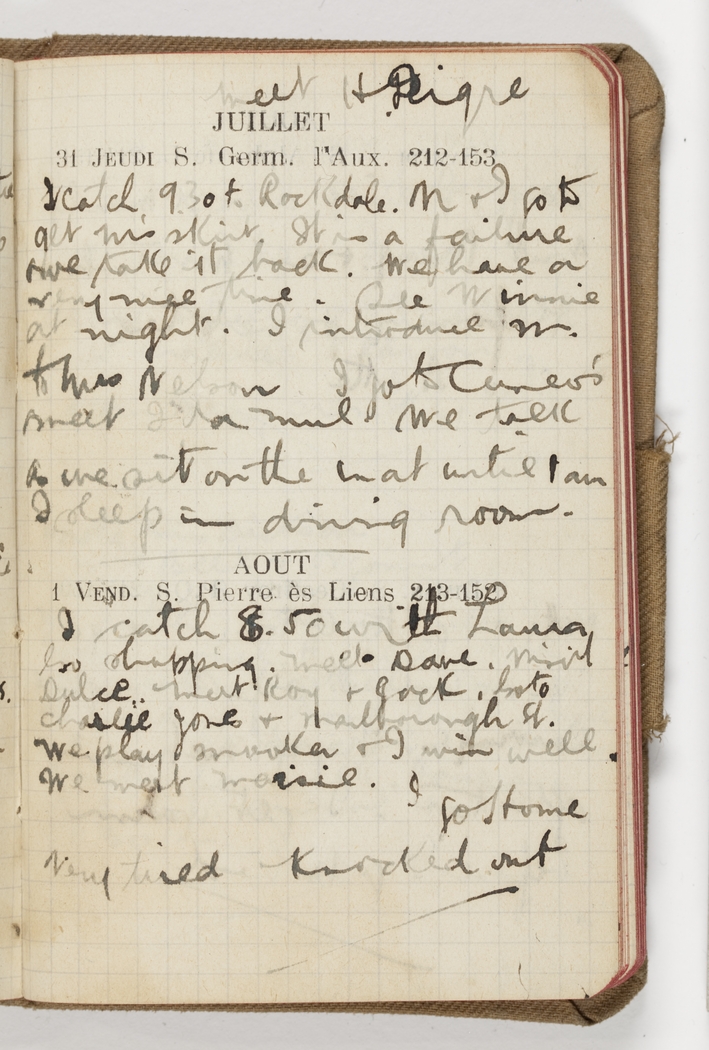 meet H Peigre
JUILLET
31 JEUDI S. Germ. l'Aux. 212-153
I catch 9.30 to Rockdale. M & I go to
get his skirt. It is a failure
& we take it back. We have a
very nice time. See Winnie
at night. I introduce M.
to Mrs Nelson. I go to Cuneo's
meet a mul. We talk
as we sit on the mat until 1 am
I sleep in dining room.
AOUT
1 VEND. S. Pierre ès Liens 213-152
I catch 8.50 with Laura,
Go shopping. meet Dave. Visit
Dulce. meet Roy & Jock. Go to
Charlie Jones & Marlborough St.
We play snooker & I win well.
We meet Maisie. I
go Home
Very tired Knocked out